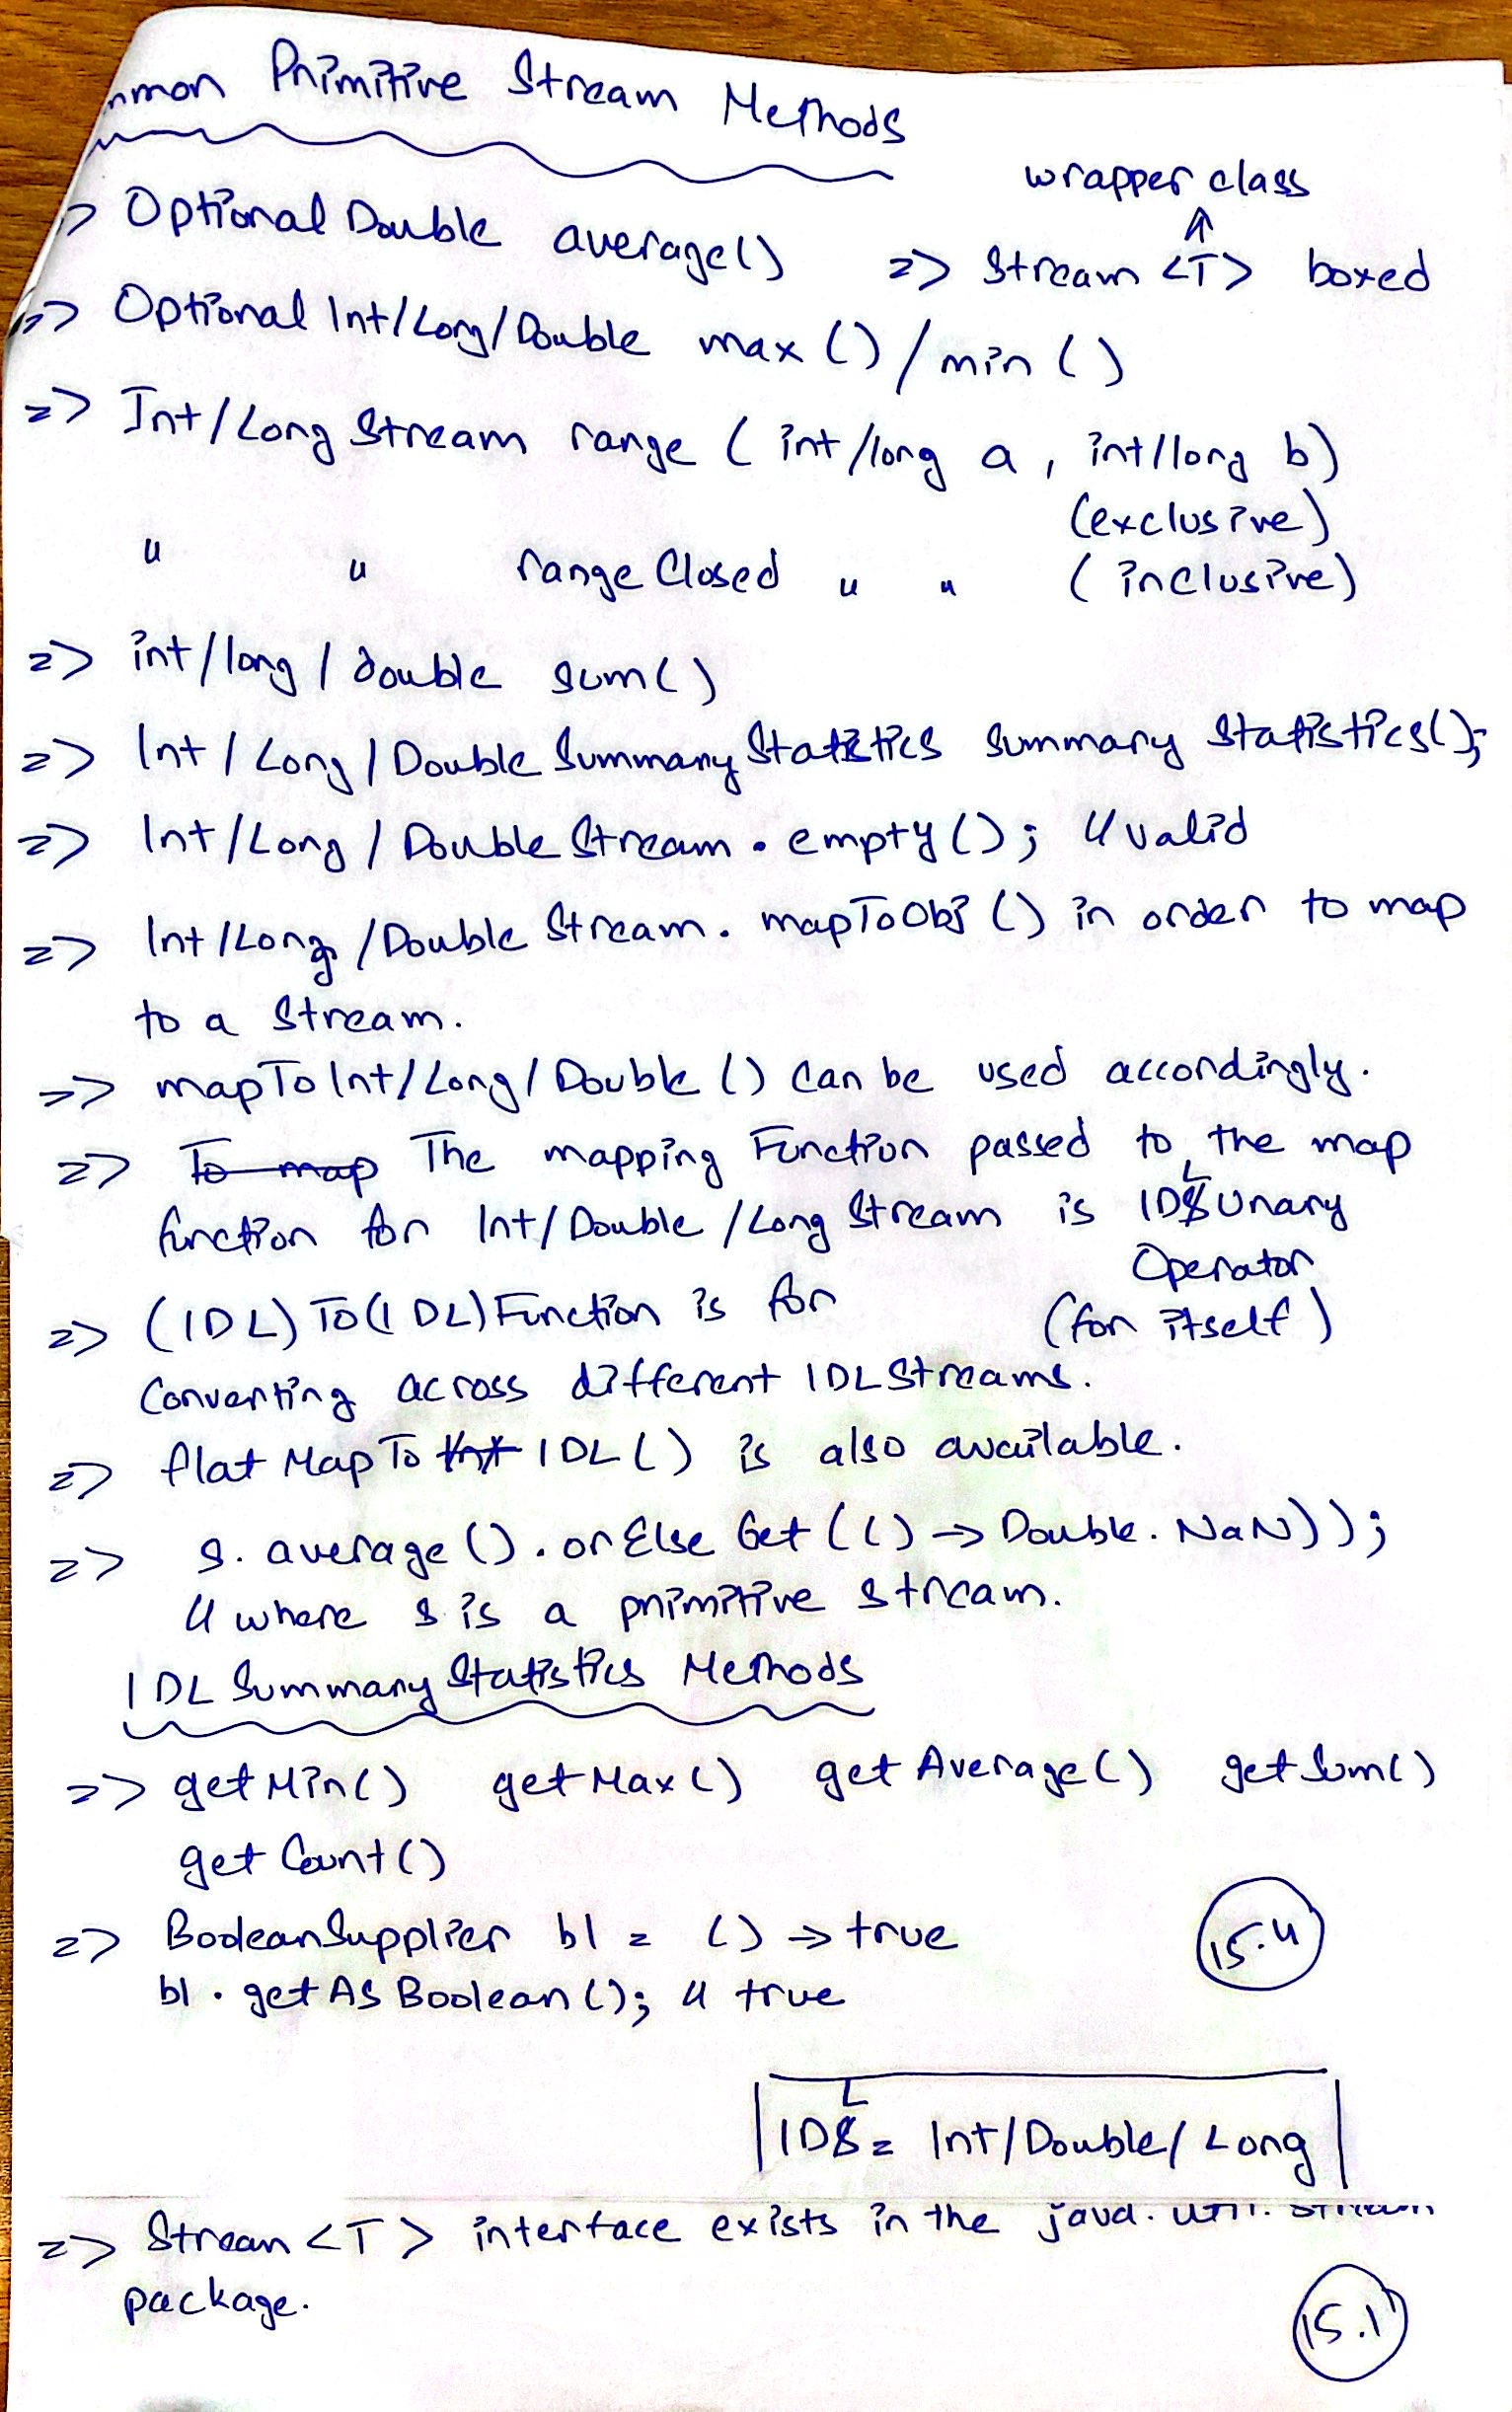 mmon Primitive Stream Methods
wrapper class
=> Optional Double average() => Stream <T> boxed
=> Optional Int/Long/Double max () / min ()
=> Int/Long Stream range ( int/long a , int/long b)
(exclusive)
" " range Closed " " ( inclusive)
=> int/long / double sum()
=> Int / Long / Double Summary Statistics Summary Statistics();
=> Int/Long / Double Stream . empty (); // valid
=> Int/Long /Double Stream. mapToObj () in order to map
to a stream.
=> mapTo Int/Long/Double () can be used accordingly.
=> To map The mapping Function passed to the map
function for Int/Double /Long Stream is IDL Unary
Operator
(for itself)
=> (IDL) To (IDL) Function is for
Converting across different IDL Streams.
=> flat Map To Int IDL () is also available.
=> s. average (). or Else Get (() -> Double. NaN));
// where s is a primitive stream.
IDL Summary Statistics Methods
=> getMin() getMax() get Average() get Sum()
get Count()
=> BooleanSupplier b1 = () -> true
b1 . getAs Boolean(); // true
15.4
IDL = Int/Double/ Long
=> Stream <T> interface exists in the java. util. stream
package.
15.1